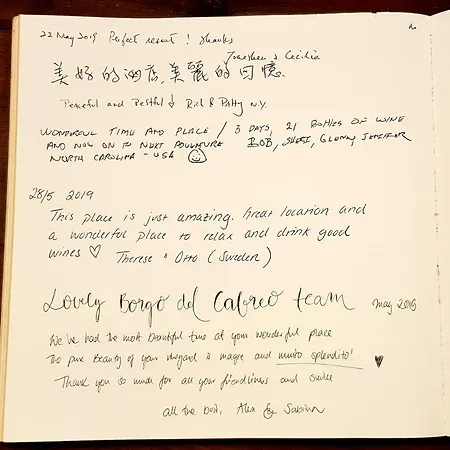 22 May 2019 Perfect resort! Thanks
Jonathan & Cecilia
美好的酒店美麗的回憶.
Peaceful and Restful! Rich & Patty N.Y.
WONDERFUL TIME AND PLACE / 3 DAYS, 21 BOTTLES OF WINE
AND NOW ON TO NEXT ADVENTURE BOB, SHERI, GLENN, JENNIFER
NORTH CAROLINA - USA
28/5 2019
This place is just amazing. Great location and
a wonderful place to relax and drink good
wines ♡ Therese & Otto (Sweden)
Lovely Borgo del Cabreo team May 2019
We've had the most beautiful time at your wonderful place
The pure beauty of your vineyard is magic and munto splendito! ♥
Thank you so much for all your friendliness and smile
all the best, Alex & Sabine